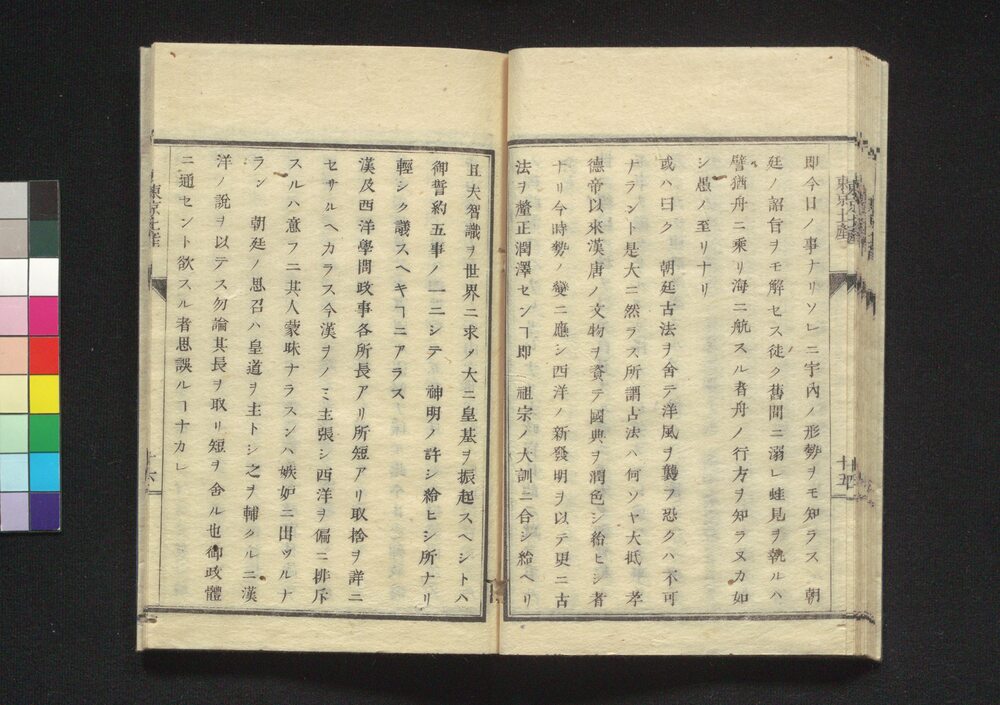 即今日ノ事ナリソレニ宇內ノ形勢ヲモ知ラス　朝
廷ノ詔旨ヲモ解セス徒ク舊聞ニ溺レ蛙見ヲ執ルハ
譬猶舟ニ乘リ海ニ航スル者舟ノ行方ヲ知ラヌカ如
シ愚ノ至リナリ
或ハ曰ク　朝廷古法ヲ舍テ洋風ヲ襲フ恐クハ不可
ナラント是大ニ然ラス所謂古法ハ何ソヤ大抵　孝
德帝以來漢唐ノ文物ヲ資テ國典ヲ潤色シ給ヒシ者
ナリ今時勢ノ變ニ應シ西洋ノ新發明ヲ以テ更ニ古
法ヲ釐正潤澤センヿ卽　祖宗ノ大訓ニ合シ給ヘリ
東京土產
十五
且夫智識ヲ世界ニ求メ大ニ皇基ヲ振起スヘシトハ
御誓約五事ノ一ニシテ　神明ノ許シ給ヒシ所ナリ
輕シク議スヘキヿニアラス
漢及西洋學問政事各所長アリ所短アリ取捨ヲ詳ニ
セサルヘカラス今漢ヲノミ主張シ西洋ヲ偏ニ排斥
スルハ意フニ其人蒙昧ナラスンハ嫉妒ニ出ツルナ
ラン　朝廷ノ思召ハ皇道ヲ主トシ之ヲ輔クルニ漢
洋ノ說ヲ以テス勿論其長ヲ取リ短ヲ舍ル也御政體
ニ通セント欲スル者思誤ルヿナカレ
東京土產
十六